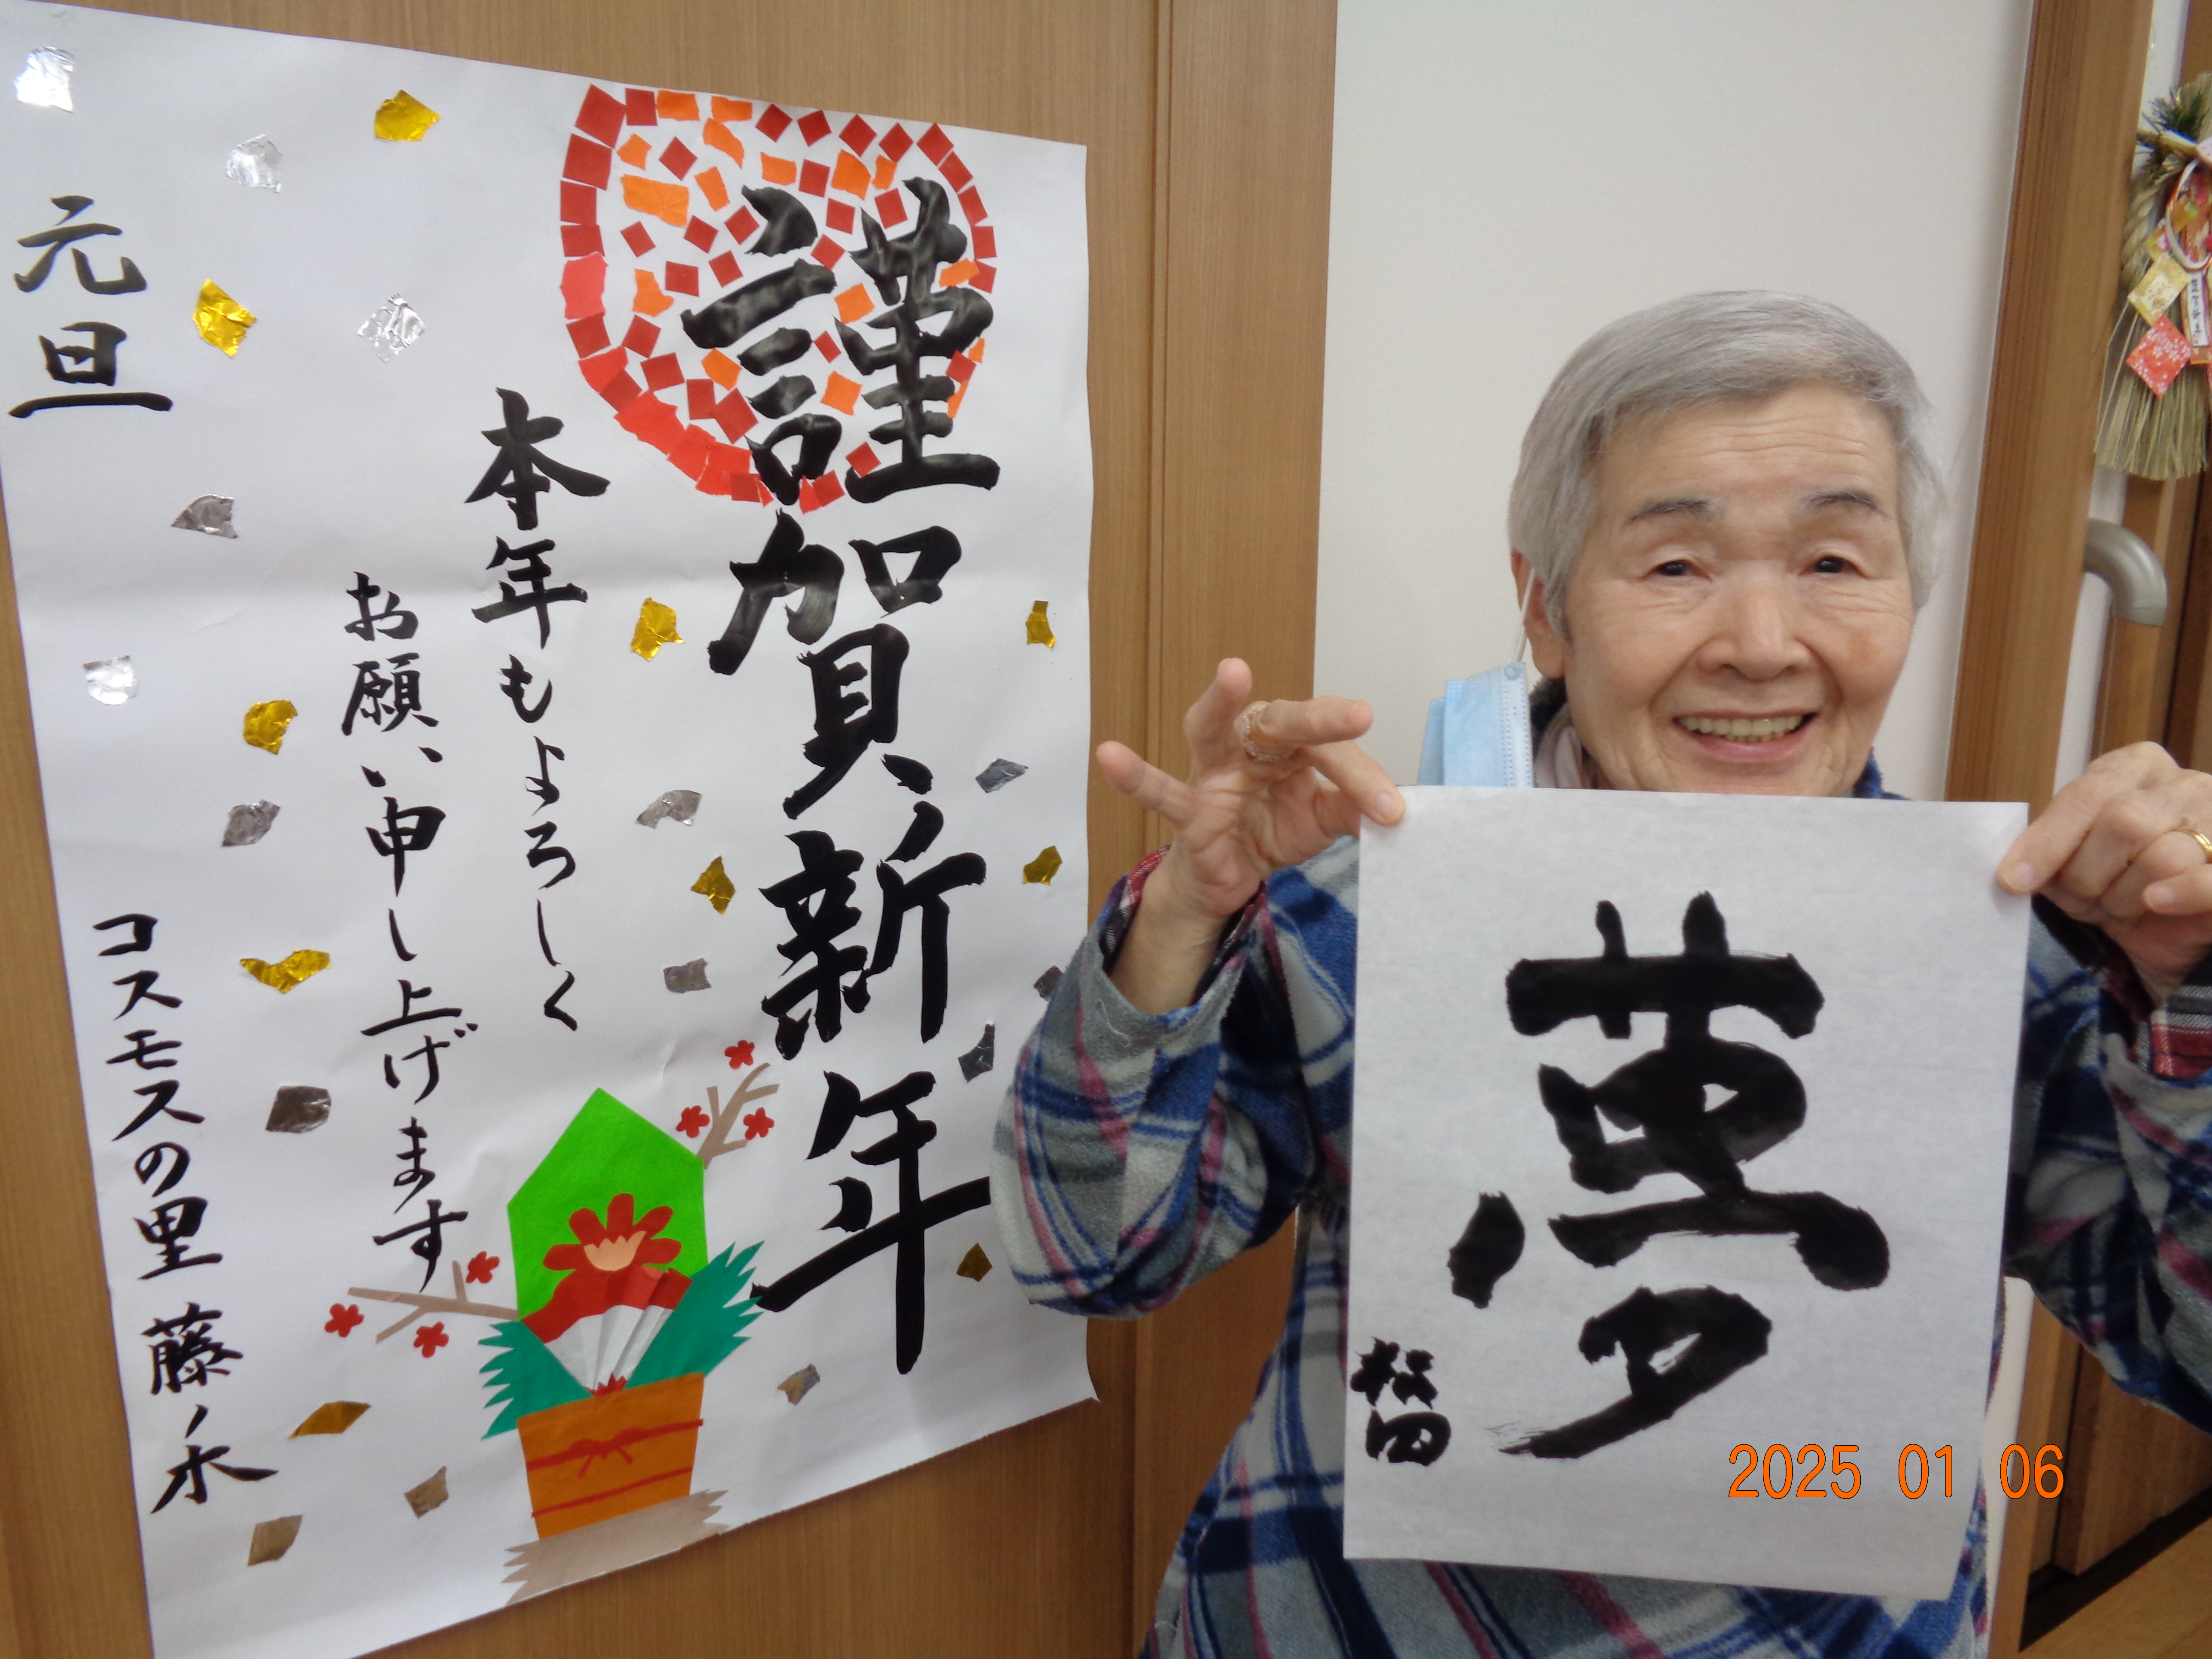 謹賀新年
本年もよろしく
お願い申し上げます
元旦
コスモスの里 藤ノ木
夢
松田
2025 01 06